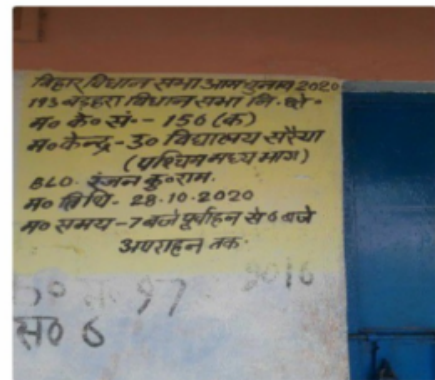 बिहार विधान सभा आम चुनाव 2020
193 बड़हरा विधान सभा नि. क्षे०
म० के० सं०- 156 (क)
म० केन्द्र - उ० विद्यालय सरैया
(पश्चिम मध्य भाग)
BLO. रंजन कु० राम.
म० तिथि - 28.10.2020
म० समय - 7 बजे पूर्वाहन से 6 बजे
अपराहन तक.
97
स० 6